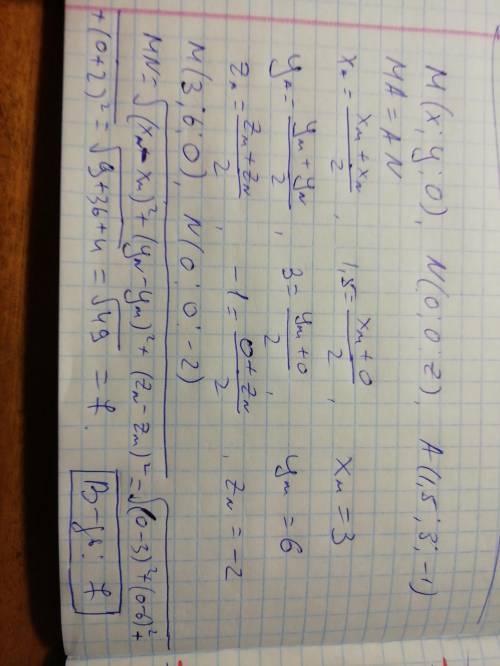 M(x; y; 0), N(0; 0; z), A(1,5; 3; -1)
MA = AN
xₐ = (xₘ + xₙ)/2, 1,5 = (xₘ + 0)/2, xₘ = 3
yₐ = (yₘ + yₙ)/2, 3 = (yₘ + 0)/2, yₘ = 6
zₐ = (zₘ + zₙ)/2, -1 = (0 + zₙ)/2, zₙ = -2
M(3; 6; 0), N(0; 0; -2)
MN = √((xₙ - xₘ)² + (yₙ - yₘ)² + (zₙ - zₘ)²) = √((0-3)² + (0-6)² +
+ (0+2)²) = √(9+36+4) = √49 = 7.
В-дь: 7